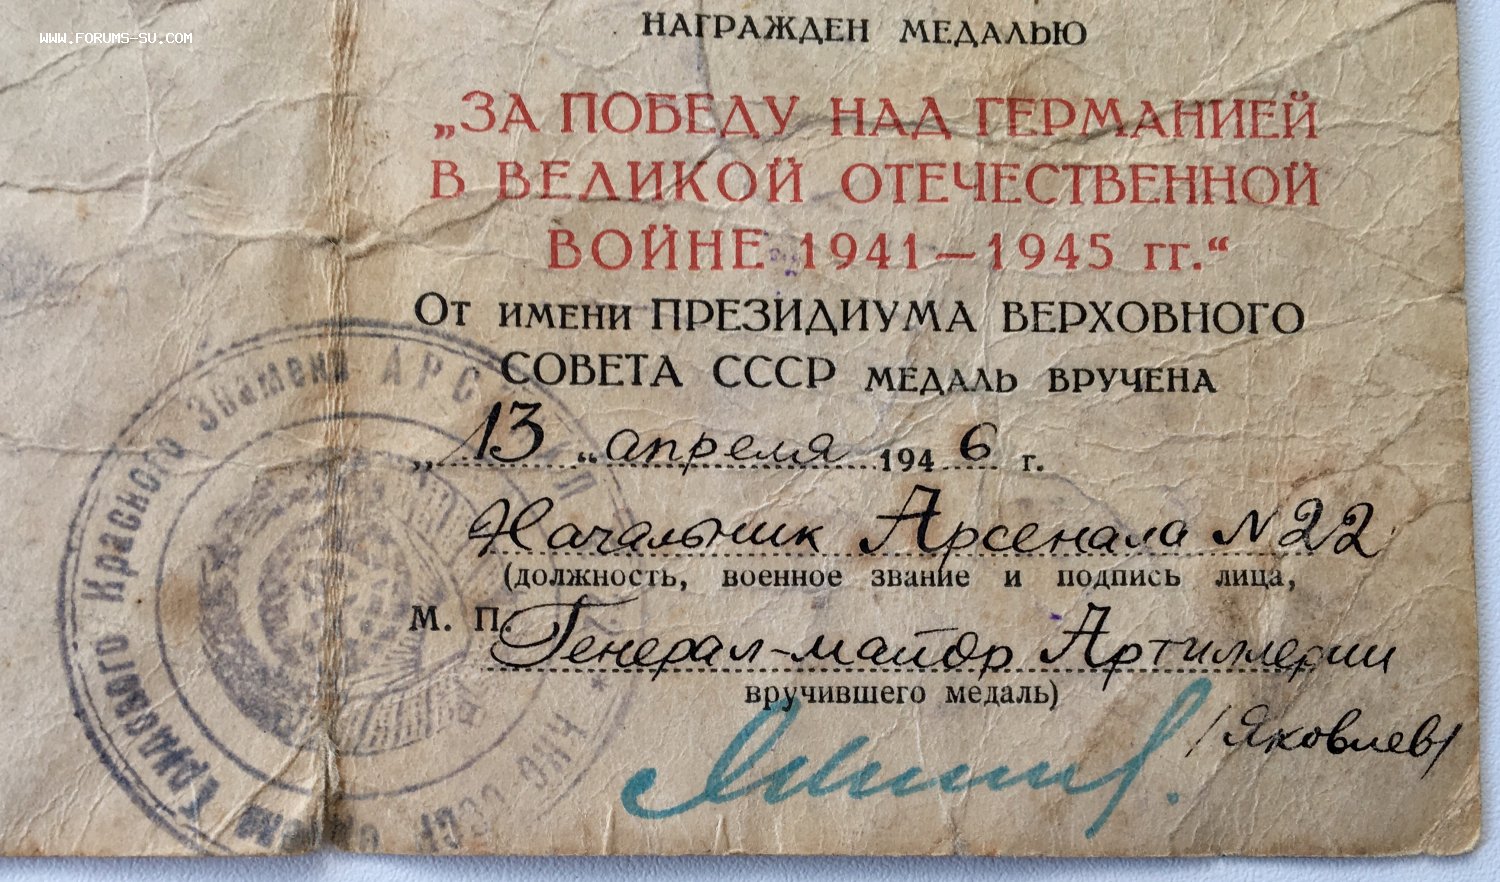 WWW.FORUMS-SU.COM
НАГРАЖДЕН МЕДАЛЬЮ
„ЗА ПОБЕДУ НАД ГЕРМАНИЕЙ
В ВЕЛИКОЙ ОТЕЧЕСТВЕННОЙ
ВОЙНЕ 1941—1945 гг.“
От имени ПРЕЗИДИУМА ВЕРХОВНОГО
СОВЕТА СССР медаль вручена
„13“ апреля 1946 г.
Начальник Арсенала N22
(должность, военное звание и подпись лица,
М. П.
Генерал-майор Артиллерии
вручившего медаль)
/Яковлев/
Трудового Красного Знамени АРСЕНАЛ
НКО СССР